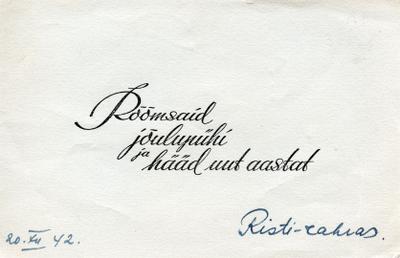 Rõõmsaid
jõulupühi
ja hääd uut aastat
20.XII 42.
Risti-rahvas.